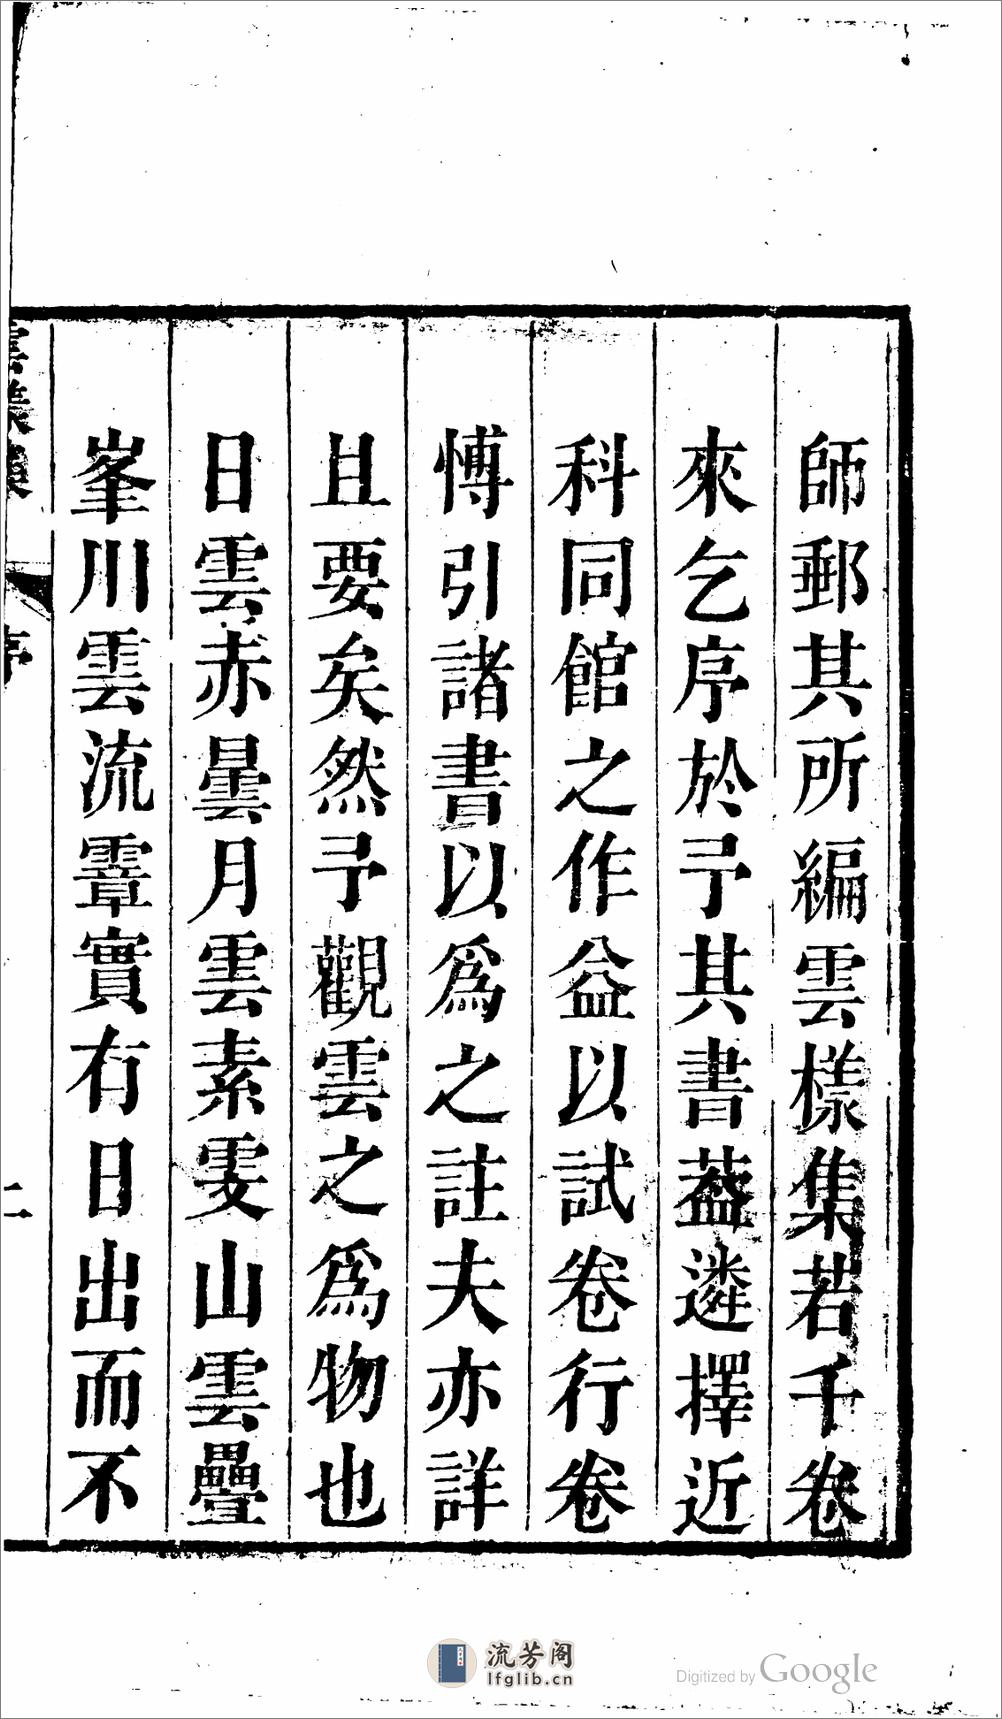 師郵其所編雲樣集若千卷
來乞序於予其書葢遴擇近
科同館之作益以試卷行卷
愽引諸書以爲之註夫亦詳
且要矣然予觀雲之爲物也
日雲赤曇月雲素雯山雲疊
峯川雲流霏實有日出而不
雲樣集
序
二
流芳阁
lfglib.cn
Digitized by Google